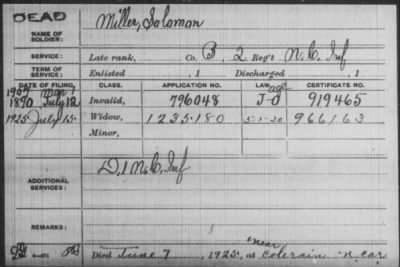 DEAD
NAME OF SOLDIER: Miller, Soloman
SERVICE: Late rank, Co. B, 2 Reg't N.C. Inf
TERM OF SERVICE: Enlisted , 1 Discharged , 1
DATE OF FILING. CLASS. APPLICATION NO. LAW. CERTIFICATE NO.
1890 July 12 Invalid, 796048 J-O 919465
1925 July 15 Widow, 1235180 5-1-20 966163
Minor,
ADDITIONAL SERVICES: D, 1 N.C. Inf
REMARKS:
Died June 7, 1925, at near Colerain N. Car.